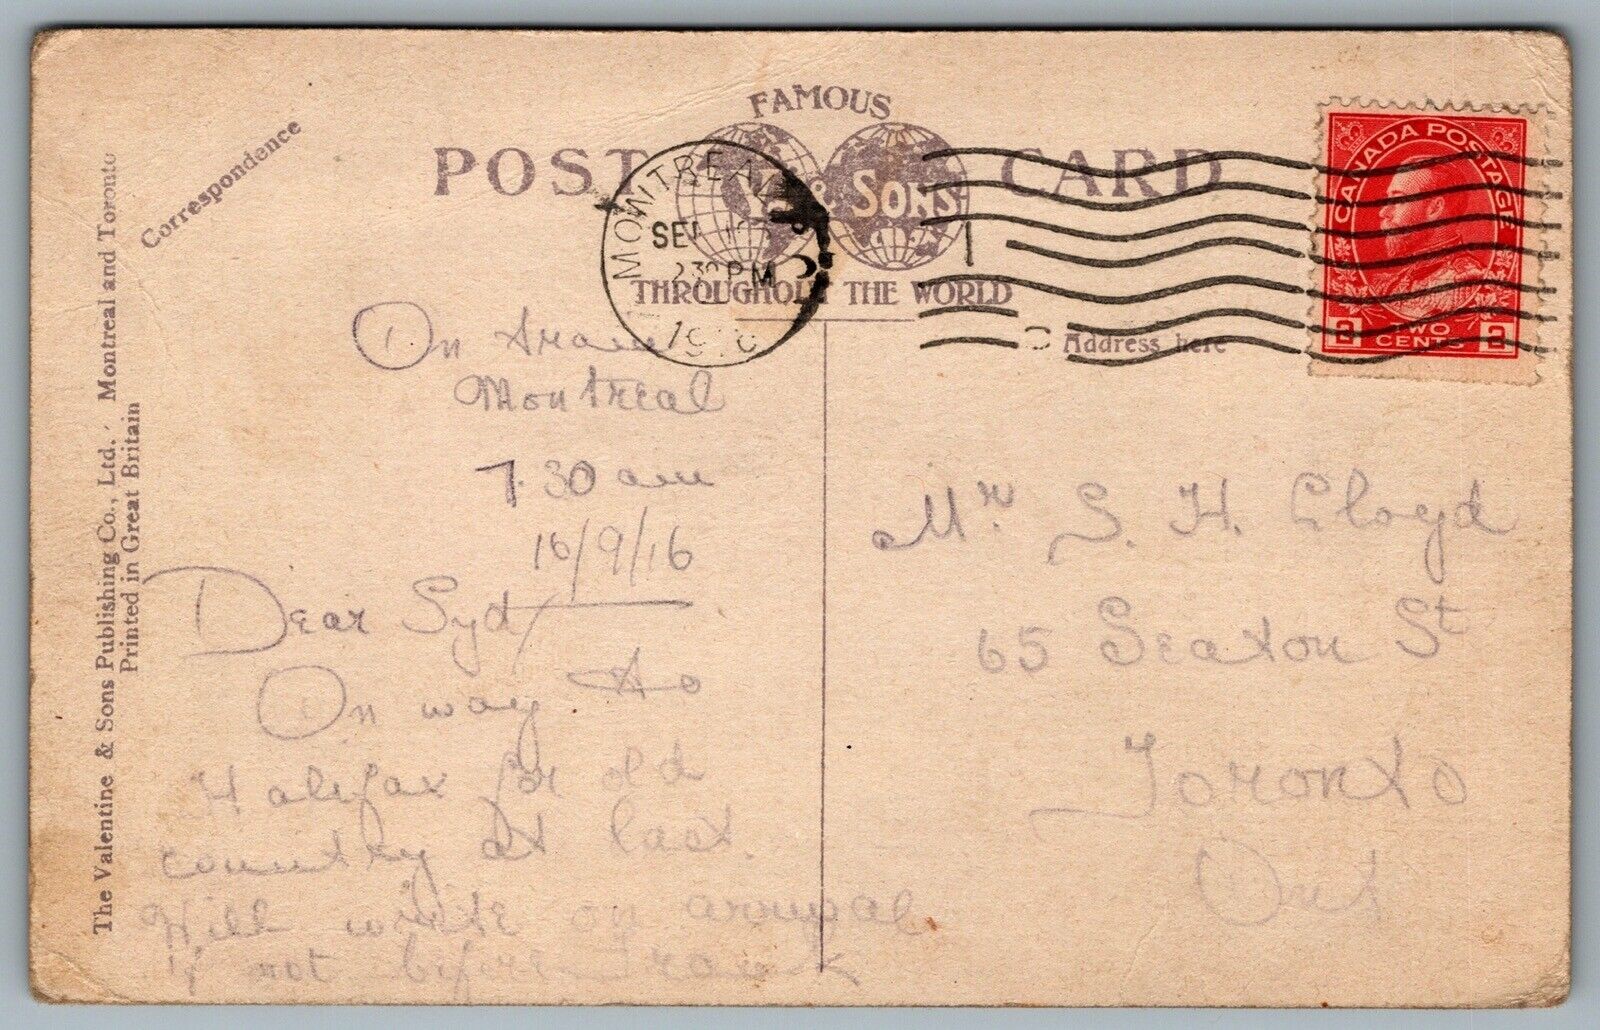 FAMOUS
POST CARD
& SONS
THROUGHOUT THE WORLD
Correspondence
Address here
MONTREAL
SE
2 30 PM
CANADA POSTAGE
2 TWO CENTS 2
The Valentine & Sons Publishing Co., Ltd. Montreal and Toronto
Printed in Great Britain
On train
Montreal
7.30 am
16/9/16
Dear Syd
On way to
Halifax for old
country at last.
Will write on arrival
if not before Frank
Mr. S. H. Lloyd
65 Seaton St
Toronto
Ont